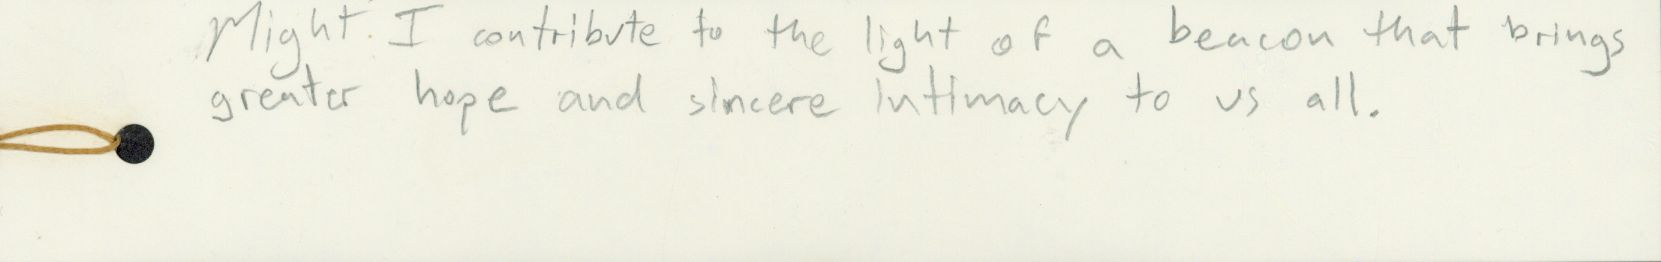 Might I contribute to the light of a beacon that brings
greater hope and sincere intimacy to us all.